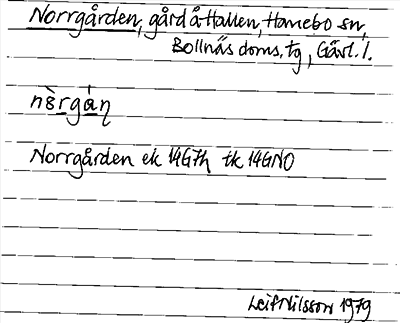 Norrgården, gård å Hallen, Hanebo sn,
Bollnäs doms. tg, Gävl. l.
nò̈rgáṇ
Norrgården ek 14G7h tk 14GNO
Leif Nilsson 1979